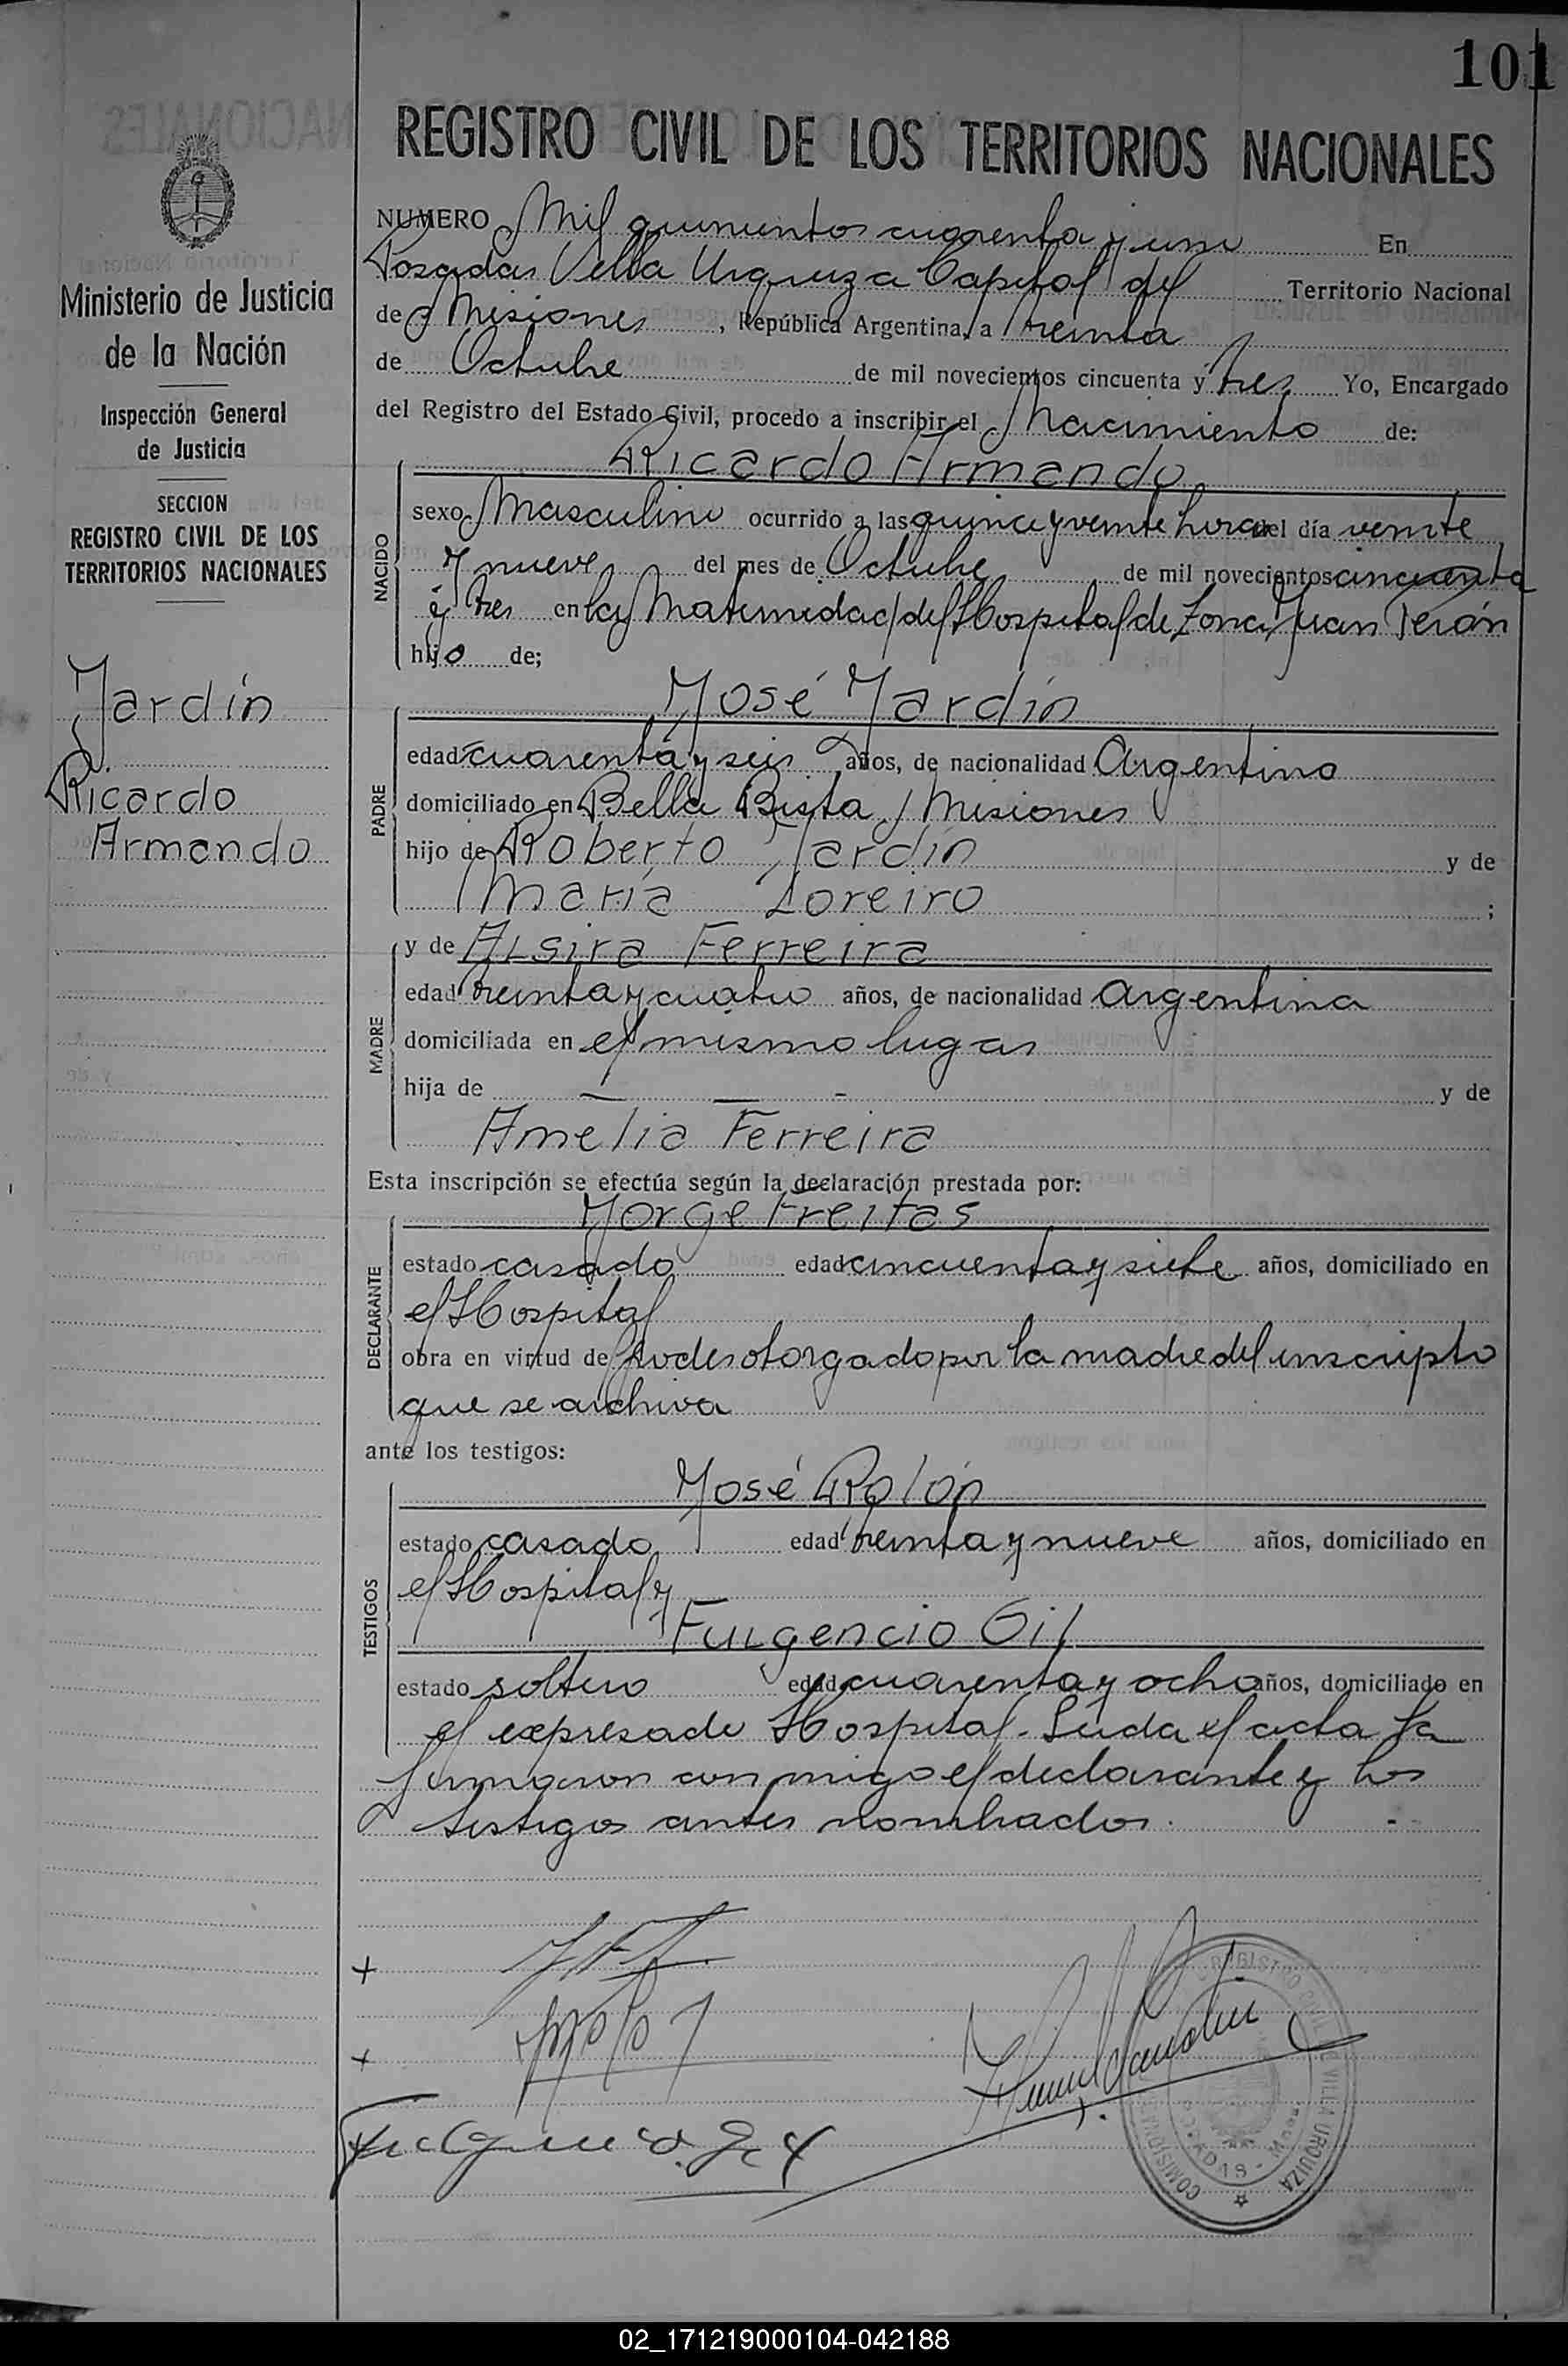 101
REGISTRO CIVIL DE LOS TERRITORIOS NACIONALES
Ministerio de Justicia
de la Nación
Inspección General
de Justicia
SECCION
REGISTRO CIVIL DE LOS
TERRITORIOS NACIONALES
Jardín
Ricardo
Armando
NUMERO Mil quinientos cuarenta y uno En
Posadas Villa Urquiza Capital del Territorio Nacional
de Misiones, República Argentina, a treinta
de Octubre de mil novecientos cincuenta y tres Yo, Encargado
del Registro del Estado Civil, procedo a inscribir el Nacimiento de:
NACIDO
Ricardo Armando
sexo Masculino ocurrido a las quince y veinte horas del día veinte
y nueve del mes de Octubre de mil novecientos cincuenta
y tres en la Maternidad del Hospital de Zona Juan Perón
hijo de;
PADRE
José Jardín
edad cuarenta y seis años, de nacionalidad Argentino
domiciliado en Bella Bista, Misiones
hijo de Roberto Jardín y de
María Loreiro ;
MADRE
y de Alsira Ferreira
edad treinta y cuatro años, de nacionalidad Argentina
domiciliada en el mismo lugar
hija de — — - y de
Amelia Ferreira
Esta inscripción se efectúa según la declaración prestada por:
DECLARANTE
Jorge Freitas
estado casado edad cincuenta y siete años, domiciliado en
el Hospital
obra en virtud de Poder otorgado por la madre del inscripto
que se archiva
ante los testigos:
TESTIGOS
José Rolón
estado casado edad treinta y nueve años, domiciliado en
el Hospital y
Fulgencio Gil
estado soltero edad cuarenta y ocho años, domiciliado en
el expresado Hospital. Leida el acta la
firmaron conmigo el declarante y los
testigos antes nombrados.
REGISTRO CIVIL DE VILLA URQUIZA
02_171219000104-042188